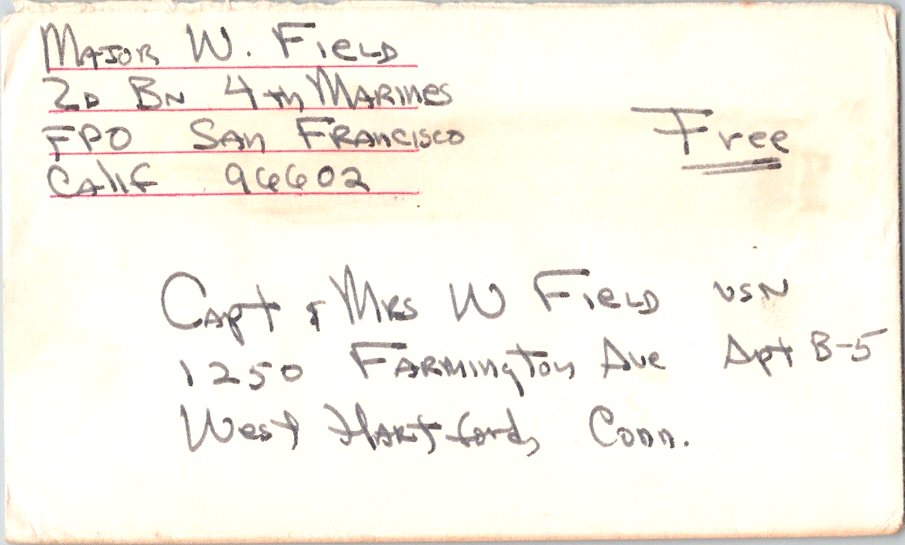 Major W. Field
2d Bn 4th Marines
FPO San Francisco
Calif 96602
Free
Capt & Mrs W Field USN
1250 Farmington Ave Apt B-5
West Hartford, Conn.